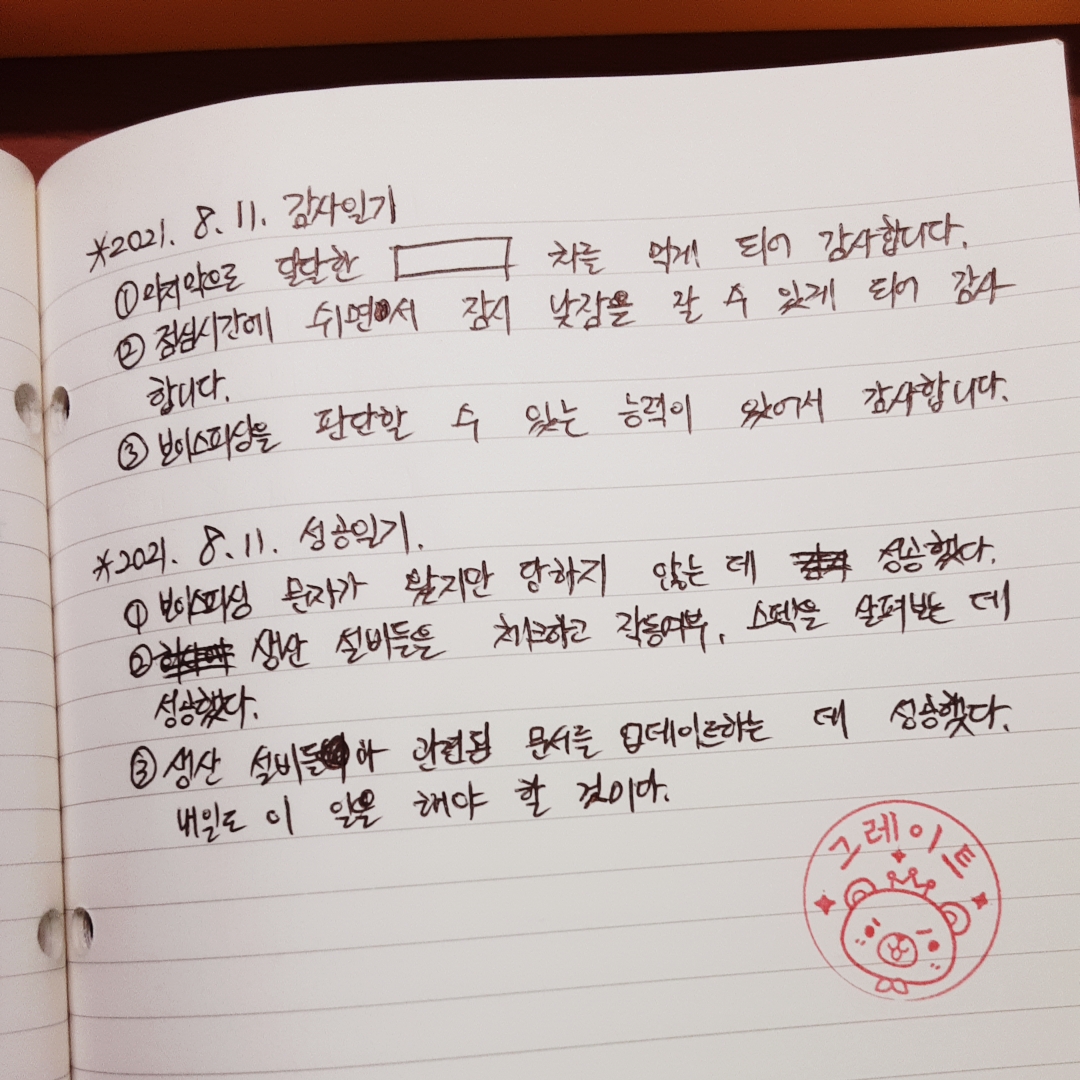 *2021. 8. 11. 감사일기
① 마지막으로 달달한 차를 먹게 되어 감사합니다.
② 점심시간에 쉬면서 잠시 낮잠을 잘 수 있게 되어 감사
합니다.
③ 보이스피싱을 판단할 수 있는 능력이 있어서 감사합니다.
*2021. 8. 11. 성공일기.
① 보이스피싱 문자가 왔지만 당하지 않는 데 성공했다.
② 생산 설비들을 체크하고 작동여부, 스펙을 살펴보는 데
성공했다.
③ 생산 설비들와 관련된 문서를 업데이트하는 데 성공했다.
내일도 이 일을 해야 할 것이다.
그레이트